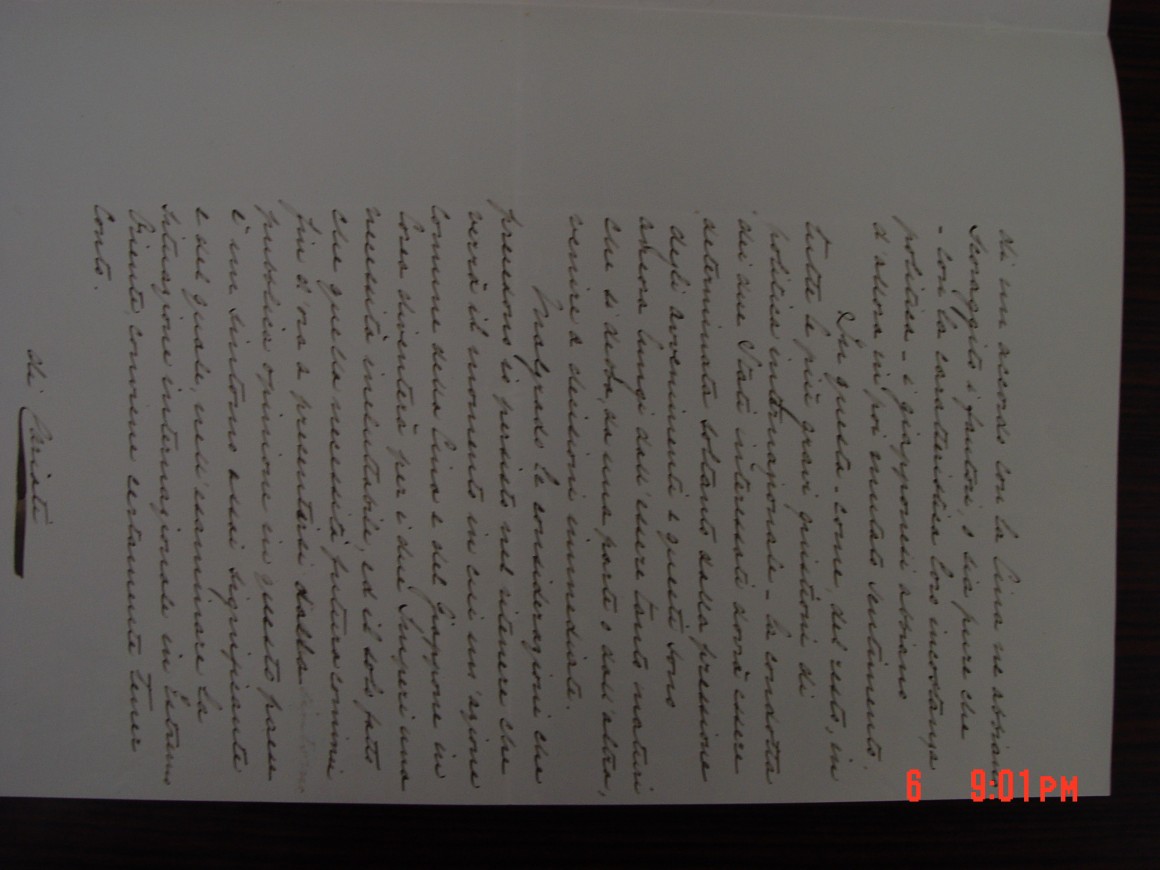 di un accordo con la Cina ne abbiano
scoraggito i fautori, o sia pure che
- con la caratteristica loro incostanza
politica - i giapponesi abbiano
d'allora in poi mutato sentimento.
In questa - come, del resto, in
tutte le più gravi quistioni di
politica internazionale - la condotta
dei due Stati interessati dovrà essere
determinata soltanto dalla pressione
degli avvenimenti e questi sono
ancora lungi dall'essere tanto maturi
che si debba, da una parte o dall'altra,
venire a decisioni immediate.
Malgrado le considerazioni che
precedono io persisto nel ritenere che
verrà il momento in cui un'azione
comune della Cina e del Giappone in
Corea diventerà per i due Imperi una
necessità ineluttabile, ed il solo fatto
che quella necessità futura cominci
fin d'ora a presentarsi dalla
pubblica opinione in questo paese
è un sintomo assai significante
e del quale, nell'esaminare la
situazione internazionale in Estremo
Oriente, conviene certamente tener
conto.
di Cariati
6 9:01PM